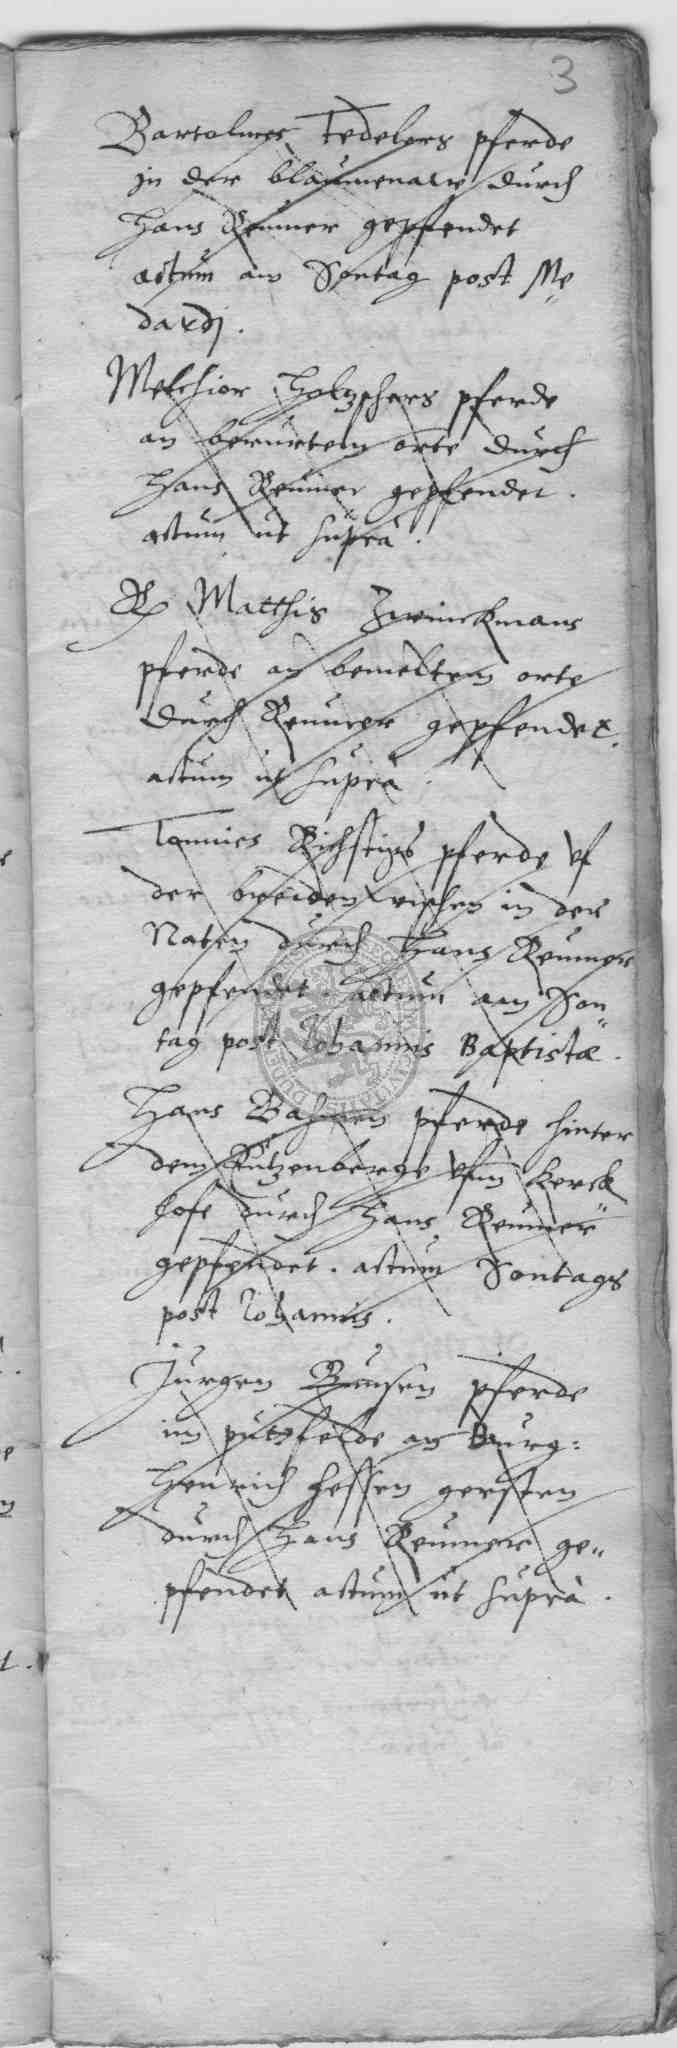 3
Bartolmes Tedelers pferde
in der blaumenawe durch
Hans Reumer gepfendet
actum am Sontag post Me„
dardj.
Melchior Holtzschers pferde
an berurtem orte durch
Hans Reumer gepfendet.
actum ut supra.
Matthis Zwinckmans
pferde an bemeltem orte
durch Reumer gepfendet.
actum ut supra.
Tonnies Richstigs pferde uf
der breiden wischen in der
Naten durch Hans Reumer
gepfendet. actum am Son„
tag post Johannis Baptistæ.
Hans Bahmen pferde hinter
dem Kutzenberge ufm kerck
hofe durch Hans Reumer
gepfendet. actum Sontags
post Johannis.
Jurgen Bunsen pferde
im putzfelde an Burg:
Henrich hessen gersten
durch Hans Reumer ge„
pfendet actum ut supra.